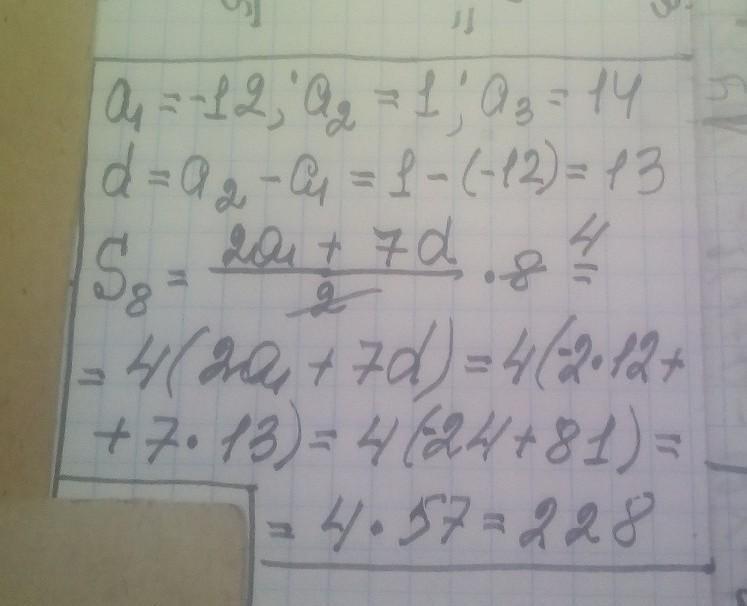 a₁ = -12; a₂ = 1; a₃ = 14
d = a₂ - a₁ = 1 - (-12) = 13
S₈ = (2a₁ + 7d)/2 · 8 4 =
= 4(2a₁ + 7d) = 4(-2·12 +
+ 7·13) = 4(-24 + 81) =
= 4·57 = 228